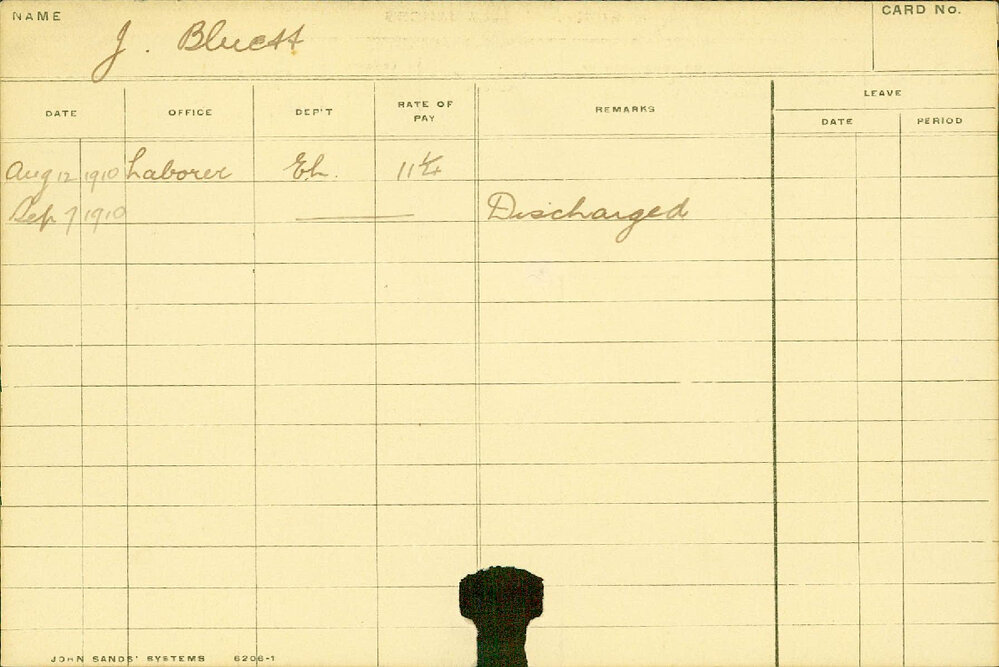 NAME
J. Bluett
CARD No.
DATE OFFICE DEP'T RATE OF PAY REMARKS LEAVE
DATE PERIOD
Aug 12 1910 Laborer 11
Sep 7 1910 Discharged
JOHN SANDS' SYSTEMS 6206-1